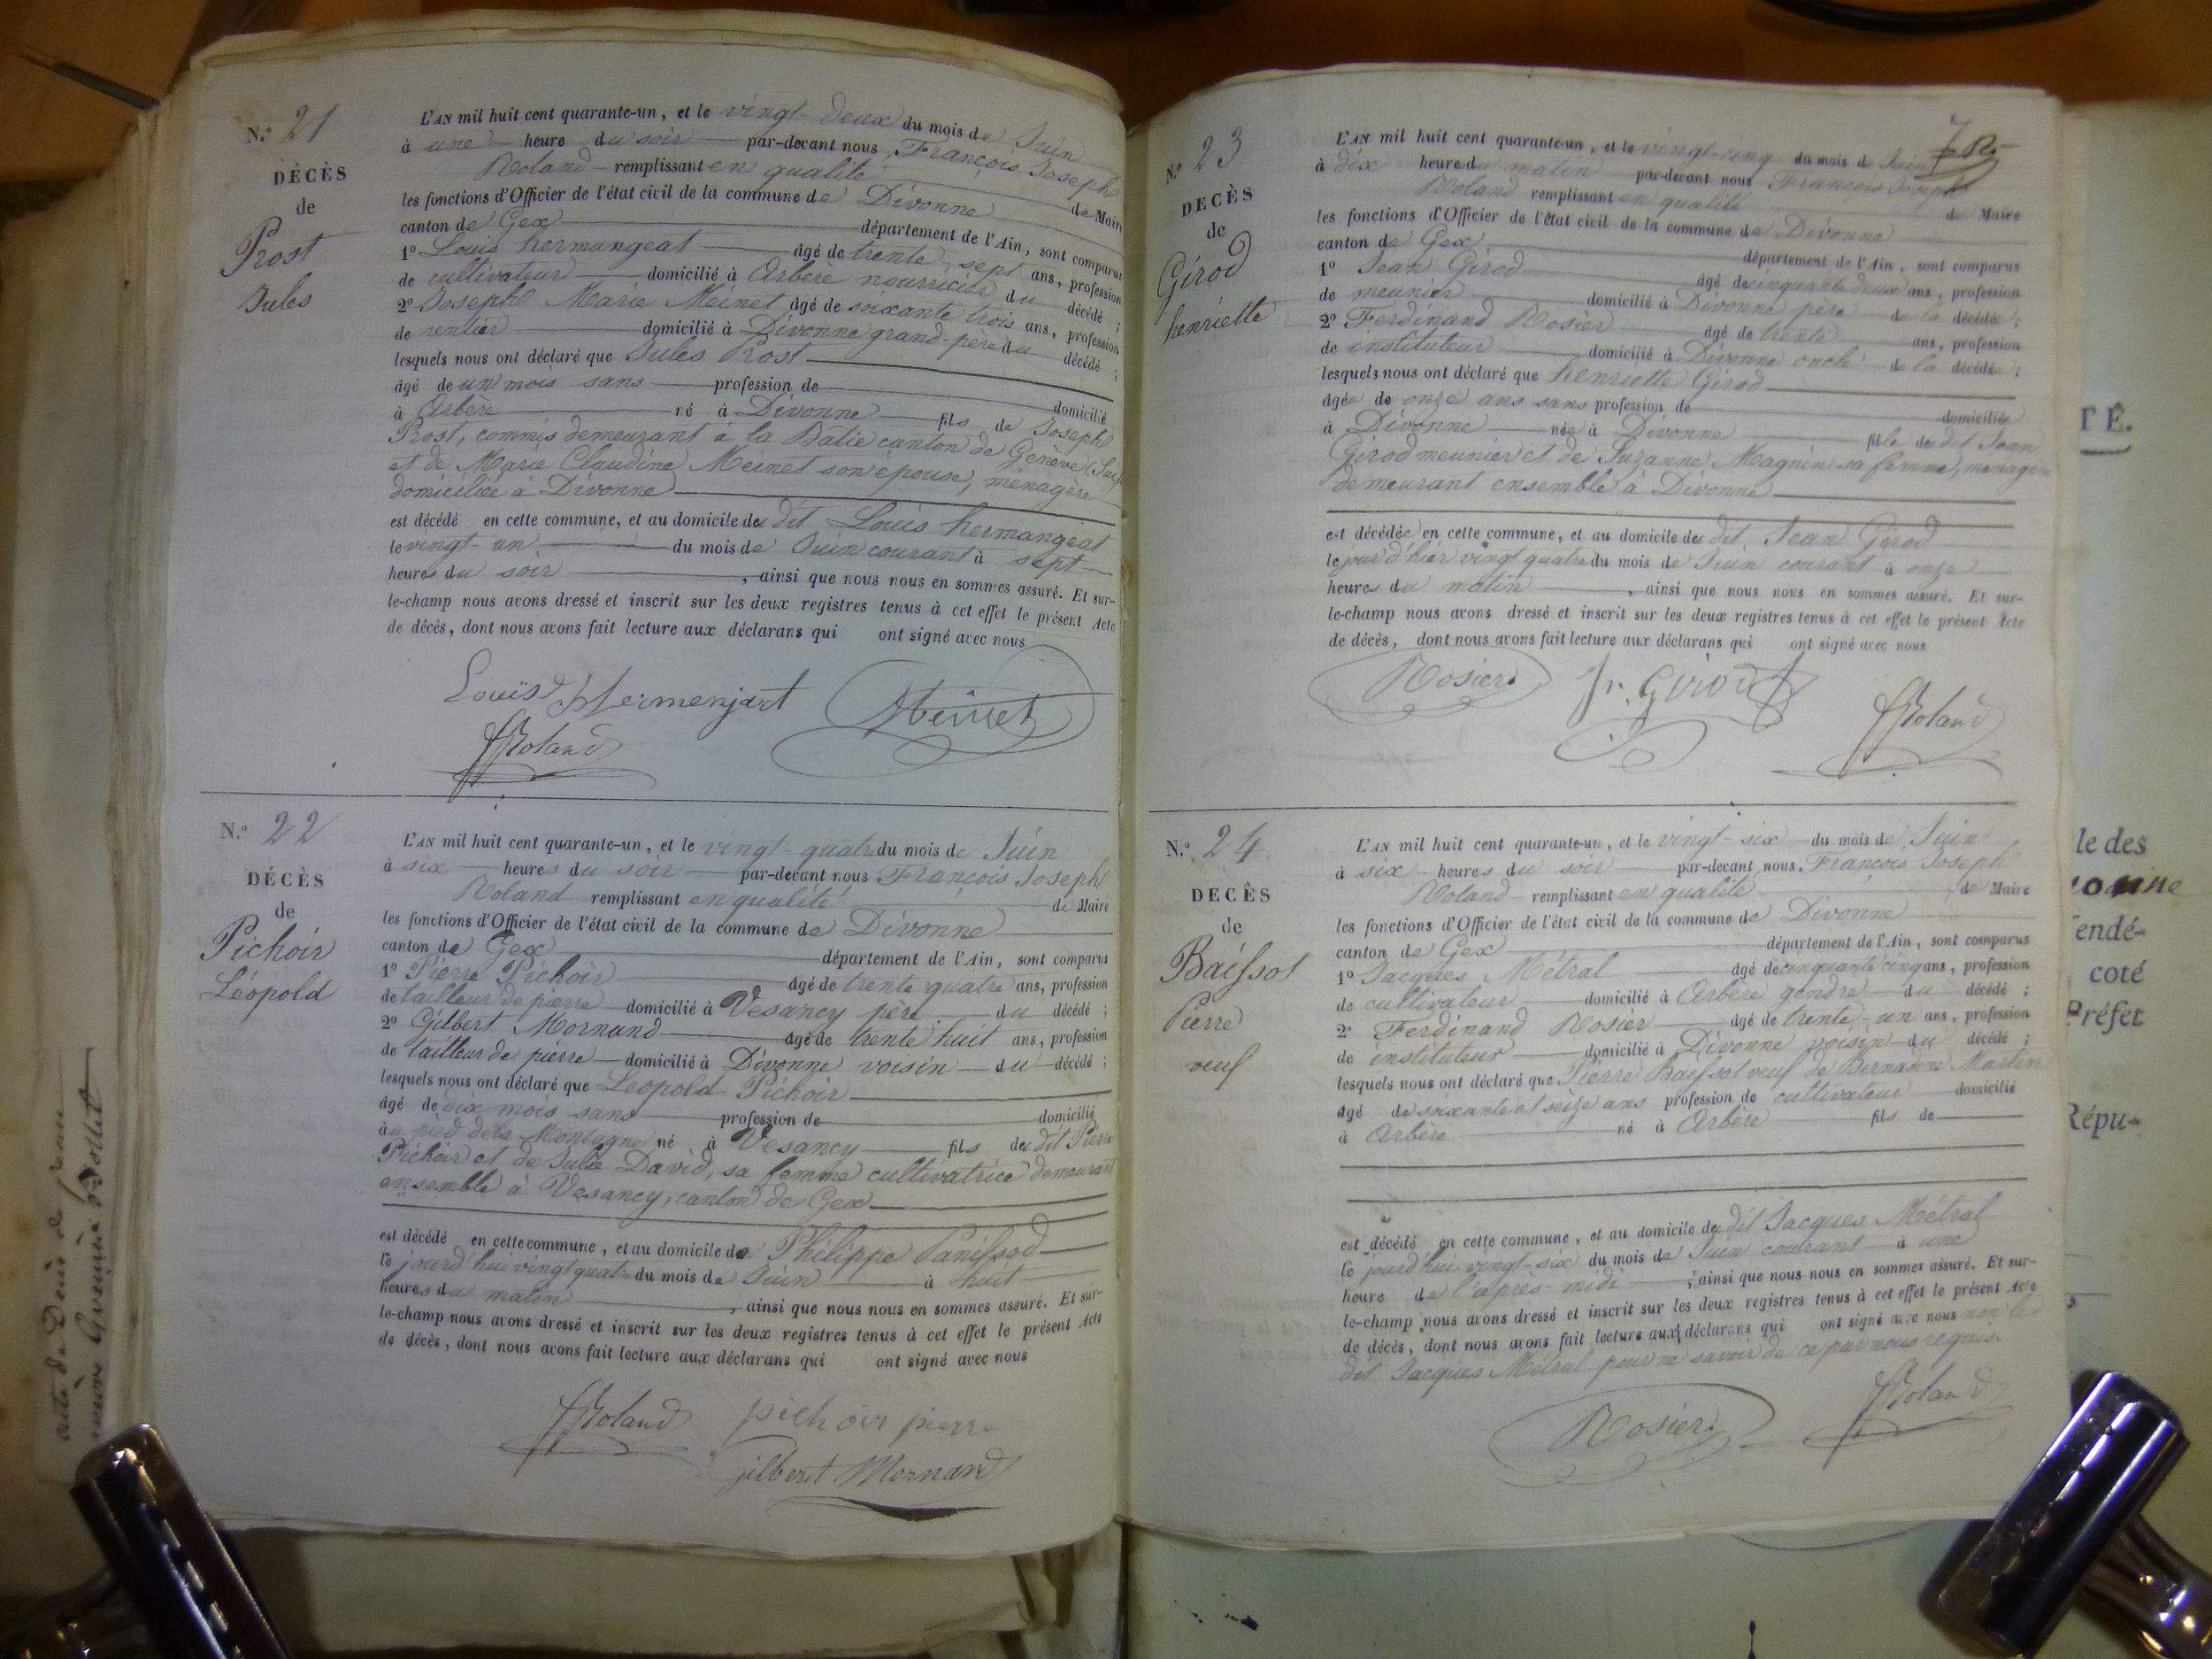 N.° 21
DÉCÈS
de
Prost
Jules
L'AN mil huit cent quarante-un, et le vingt-deux du mois de Juin
à une heure du soir par-devant nous François Joseph
Roland remplissant en qualité de Maire
les fonctions d'Officier de l'état civil de la commune de Divonne
canton de Gex département de l'Ain, sont comparus
1° Louis hermangeat âgé de trente-sept ans, profession
de cultivateur domicilié à Arbère nourricier du décédé ;
2° Joseph Marie Meinet âgé de soixante trois ans, profession
de rentier domicilié à Divonne grand-père du décédé ;
lesquels nous ont déclaré que Jules Prost
âgé de un mois sans profession de domicilié
à Arbère né à Divonne fils de Joseph
Prost, commis demeurant à la Bâtie canton de Genève
et de Marie Claudine Meinet son épouse, ménagère
domiciliée à Divonne
est décédé en cette commune, et au domicile du dit Louis hermangeat
le vingt-un du mois de Juin courant à sept
heures du soir, ainsi que nous nous en sommes assuré. Et sur-
le-champ nous avons dressé et inscrit sur les deux registres tenus à cet effet le présent Acte
de décès, dont nous avons fait lecture aux déclarans qui ont signé avec nous
Louis Hermenjat Meinet
JRoland
N.° 22
DÉCÈS
de
Pichoir
Léopold
L'AN mil huit cent quarante-un, et le vingt-quatre du mois de Juin
à six heures du soir par-devant nous François Joseph
Roland remplissant en qualité de Maire
les fonctions d'Officier de l'état civil de la commune de Divonne
canton de Gex département de l'Ain, sont comparus
1° Pierre Pichoir âgé de trente quatre ans, profession
de tailleur de pierre domicilié à Vesancy père du décédé ;
2° Gilbert Mornand âgé de trente huit ans, profession
de tailleur de pierre domicilié à Divonne voisin du décédé ;
lesquels nous ont déclaré que Léopold Pichoir
âgé de dix mois sans profession de domicilié
au pied de la Montagne né à Vesancy fils du dit Pierre
Pichoir et de Julie David, sa femme cultivatrice demeurant
ensemble à Vesancy, canton de Gex
est décédé en cette commune, et au domicile de Philippe Panissod
le jourd'hui vingt quatre du mois de Juin à huit
heures du matin, ainsi que nous nous en sommes assuré. Et sur-
le-champ nous avons dressé et inscrit sur les deux registres tenus à cet effet le présent Acte
de décès, dont nous avons fait lecture aux déclarans qui ont signé avec nous
JRoland pichoir pierre
jilbert Mornand
N.° 23
DÉCÈS
de
Girod
henriette
L'AN mil huit cent quarante-un, et le vingt-cinq du mois de Juin
à dix heures du matin par-devant nous François Joseph
Roland remplissant en qualité de Maire
les fonctions d'Officier de l'état civil de la commune de Divonne
canton de Gex département de l'Ain, sont comparus
1° Jean Girod âgé de cinquante deux ans, profession
de meunier domicilié à Divonne père de la décédée ;
2° Ferdinand Rosier âgé de trente ans, profession
de instituteur domicilié à Divonne oncle de la décédée ;
lesquels nous ont déclaré que henriette Girod
âgée de onze ans sans profession de domiciliée
à Divonne née à Divonne fille du dit Jean
Girod meunier et de Suzanne Magnin sa femme, ménagère
demeurant ensemble à Divonne
est décédée en cette commune, et au domicile du dit Jean Girod
le jour d'hier vingt quatre du mois de Juin courant à onze
heures du matin, ainsi que nous nous en sommes assuré. Et sur-
le-champ nous avons dressé et inscrit sur les deux registres tenus à cet effet le présent Acte
de décès, dont nous avons fait lecture aux déclarans qui ont signé avec nous
Rosier Jn. Girod
JRoland
N.° 24
DECÈS
de
Baissot
Pierre
veuf
L'AN mil huit cent quarante-un, et le vingt-six du mois de Juin
à six heures du soir par-devant nous, François Joseph
Roland remplissant en qualité de Maire
les fonctions d'Officier de l'état civil de la commune de Divonne
canton de Gex département de l'Ain, sont comparus
1° Jacques Métral âgé de cinquante cinq ans, profession
de cultivateur domicilié à Arbère gendre du décédé ;
2° Ferdinand Rosier âgé de trente-un ans, profession
de instituteur domicilié à Divonne voisin du décédé ;
lesquels nous ont déclaré que Pierre Baissot veuf de Bernadine Martin
âgé de soixante et seize ans profession de cultivateur domicilié
à Arbère né à Arbère fils de
est décédé en cette commune, et au domicile du dit Jacques Métral
le jourd'hui vingt-six du mois de Juin courant à une
heure de l'après-midi, ainsi que nous nous en sommes assuré. Et sur-
le-champ nous avons dressé et inscrit sur les deux registres tenus à cet effet le présent Acte
de décès, dont nous avons fait lecture aux déclarans qui ont signé avec nous non le
dit Jacques Métral pour ne savoir de ce par nous requis.
Rosier JRoland
TÉ.
le des
endé-
coté
Préfet
Répu-